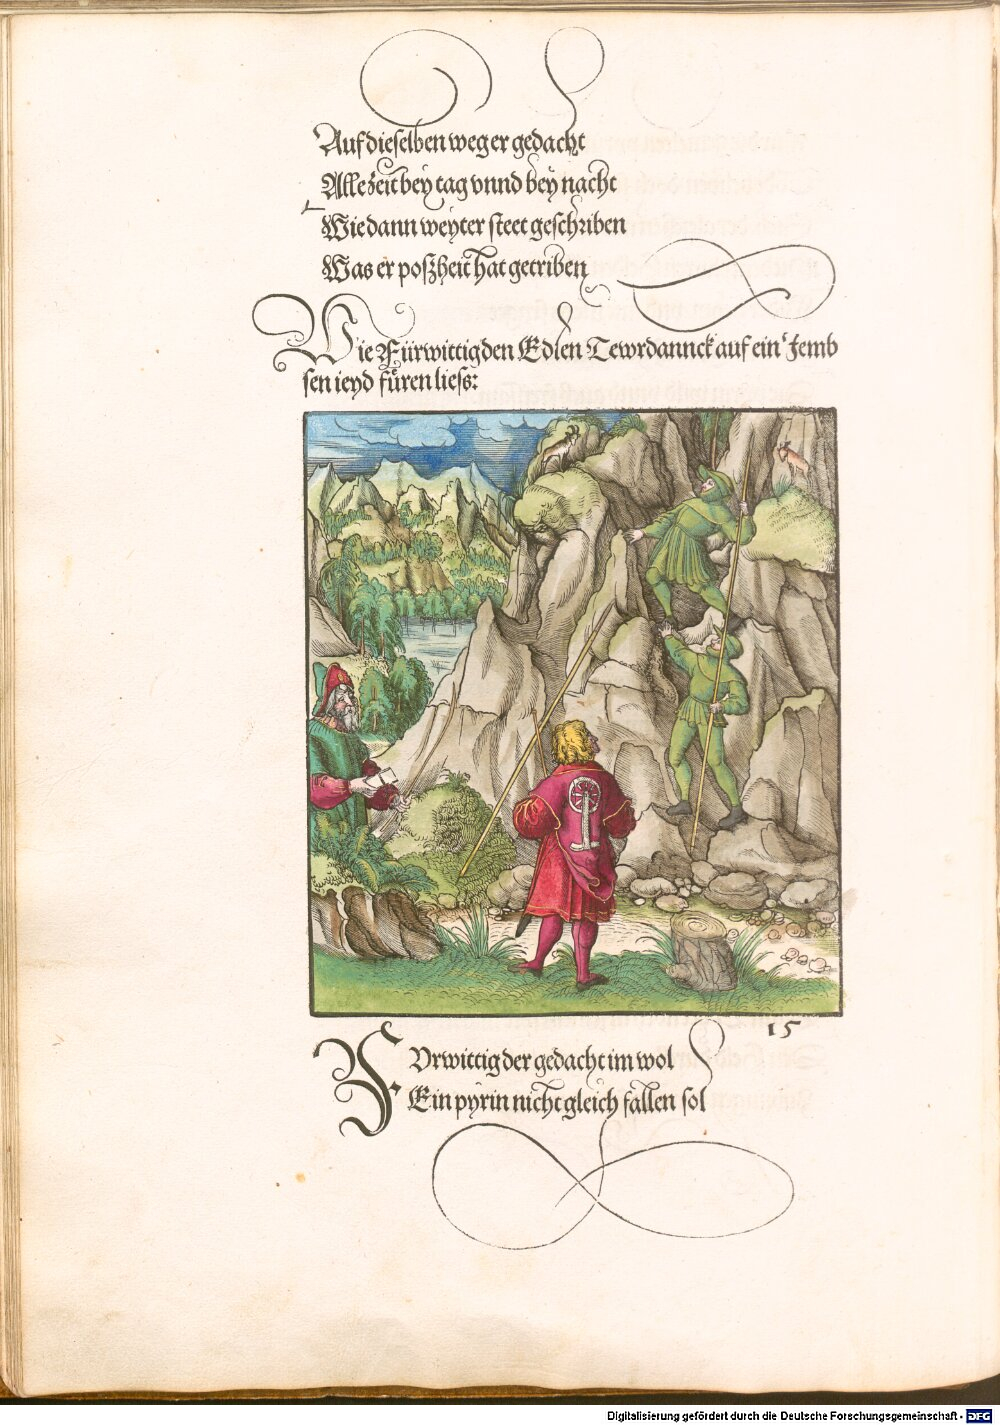 Auf dieselben weg er gedacht
Alle zeit bey tag vnnd bey nacht
Wie dann weyter steet geschriben
Was er poßheit hat getriben
Wie Fürwittig den Edlen Tewrdannck auf ein Jemb
sen ieyd füren liess:
15
FVrwittig der gedacht im wol
Ein pyrin nicht gleich fallen sol
Digitalisierung gefördert durch die Deutsche Forschungsgemeinschaft - DFG